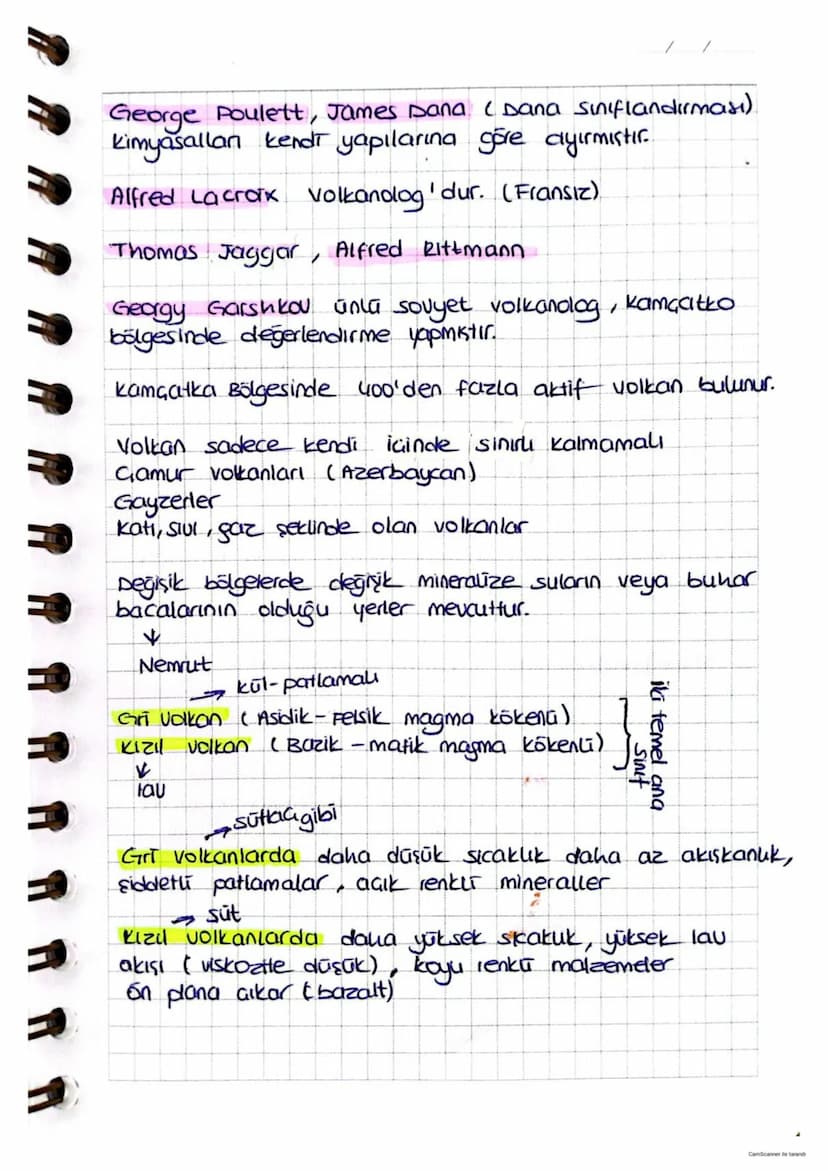 / /
George Poulett, James Dana (Dana sınıflandırması)
kimyasalları kendi yapılarına göre ayırmıştır.
Alfred Lacroix Volkanolog'dur. (Fransız)
Thomas Jaggar, Alfred Rittmann
Georgy Gorshkov ünlü sovyet volkanolog, Kamçatka
bölgesinde değerlendirme yapmıştır.
Kamçatka Bölgesinde 400'den fazla aktif volkan bulunur.
Volkan sadece kendi içinde sınırlı kalmamalı
Çamur volkanları (Azerbaycan)
Gayzerler
Katı, sıvı, gaz şeklinde olan volkanlar
Değişik bölgelerde değişik mineralize suların veya buhar
bacalarının olduğu yerler mevcuttur.
↓
Nemrut
→ kül-patlamalı
Gri Volkan (Asidik-Felsik magma kökenli)
Kızıl volkan (Bazik-mafik magma kökenli)
İki temel ana
sınıf
↓
lav
→ sütlaç gibi
Gri volkanlarda daha düşük sıcaklık daha az akışkanlık,
şiddetli patlamalar, açık renkli mineraller
→ süt
Kızıl volkanlarda daha yüksek sıcaklık, yüksek lav
akışı (viskozite düşük), koyu renkli malzemeler
ön plana çıkar (bazalt)
CamScanner ile tarandı